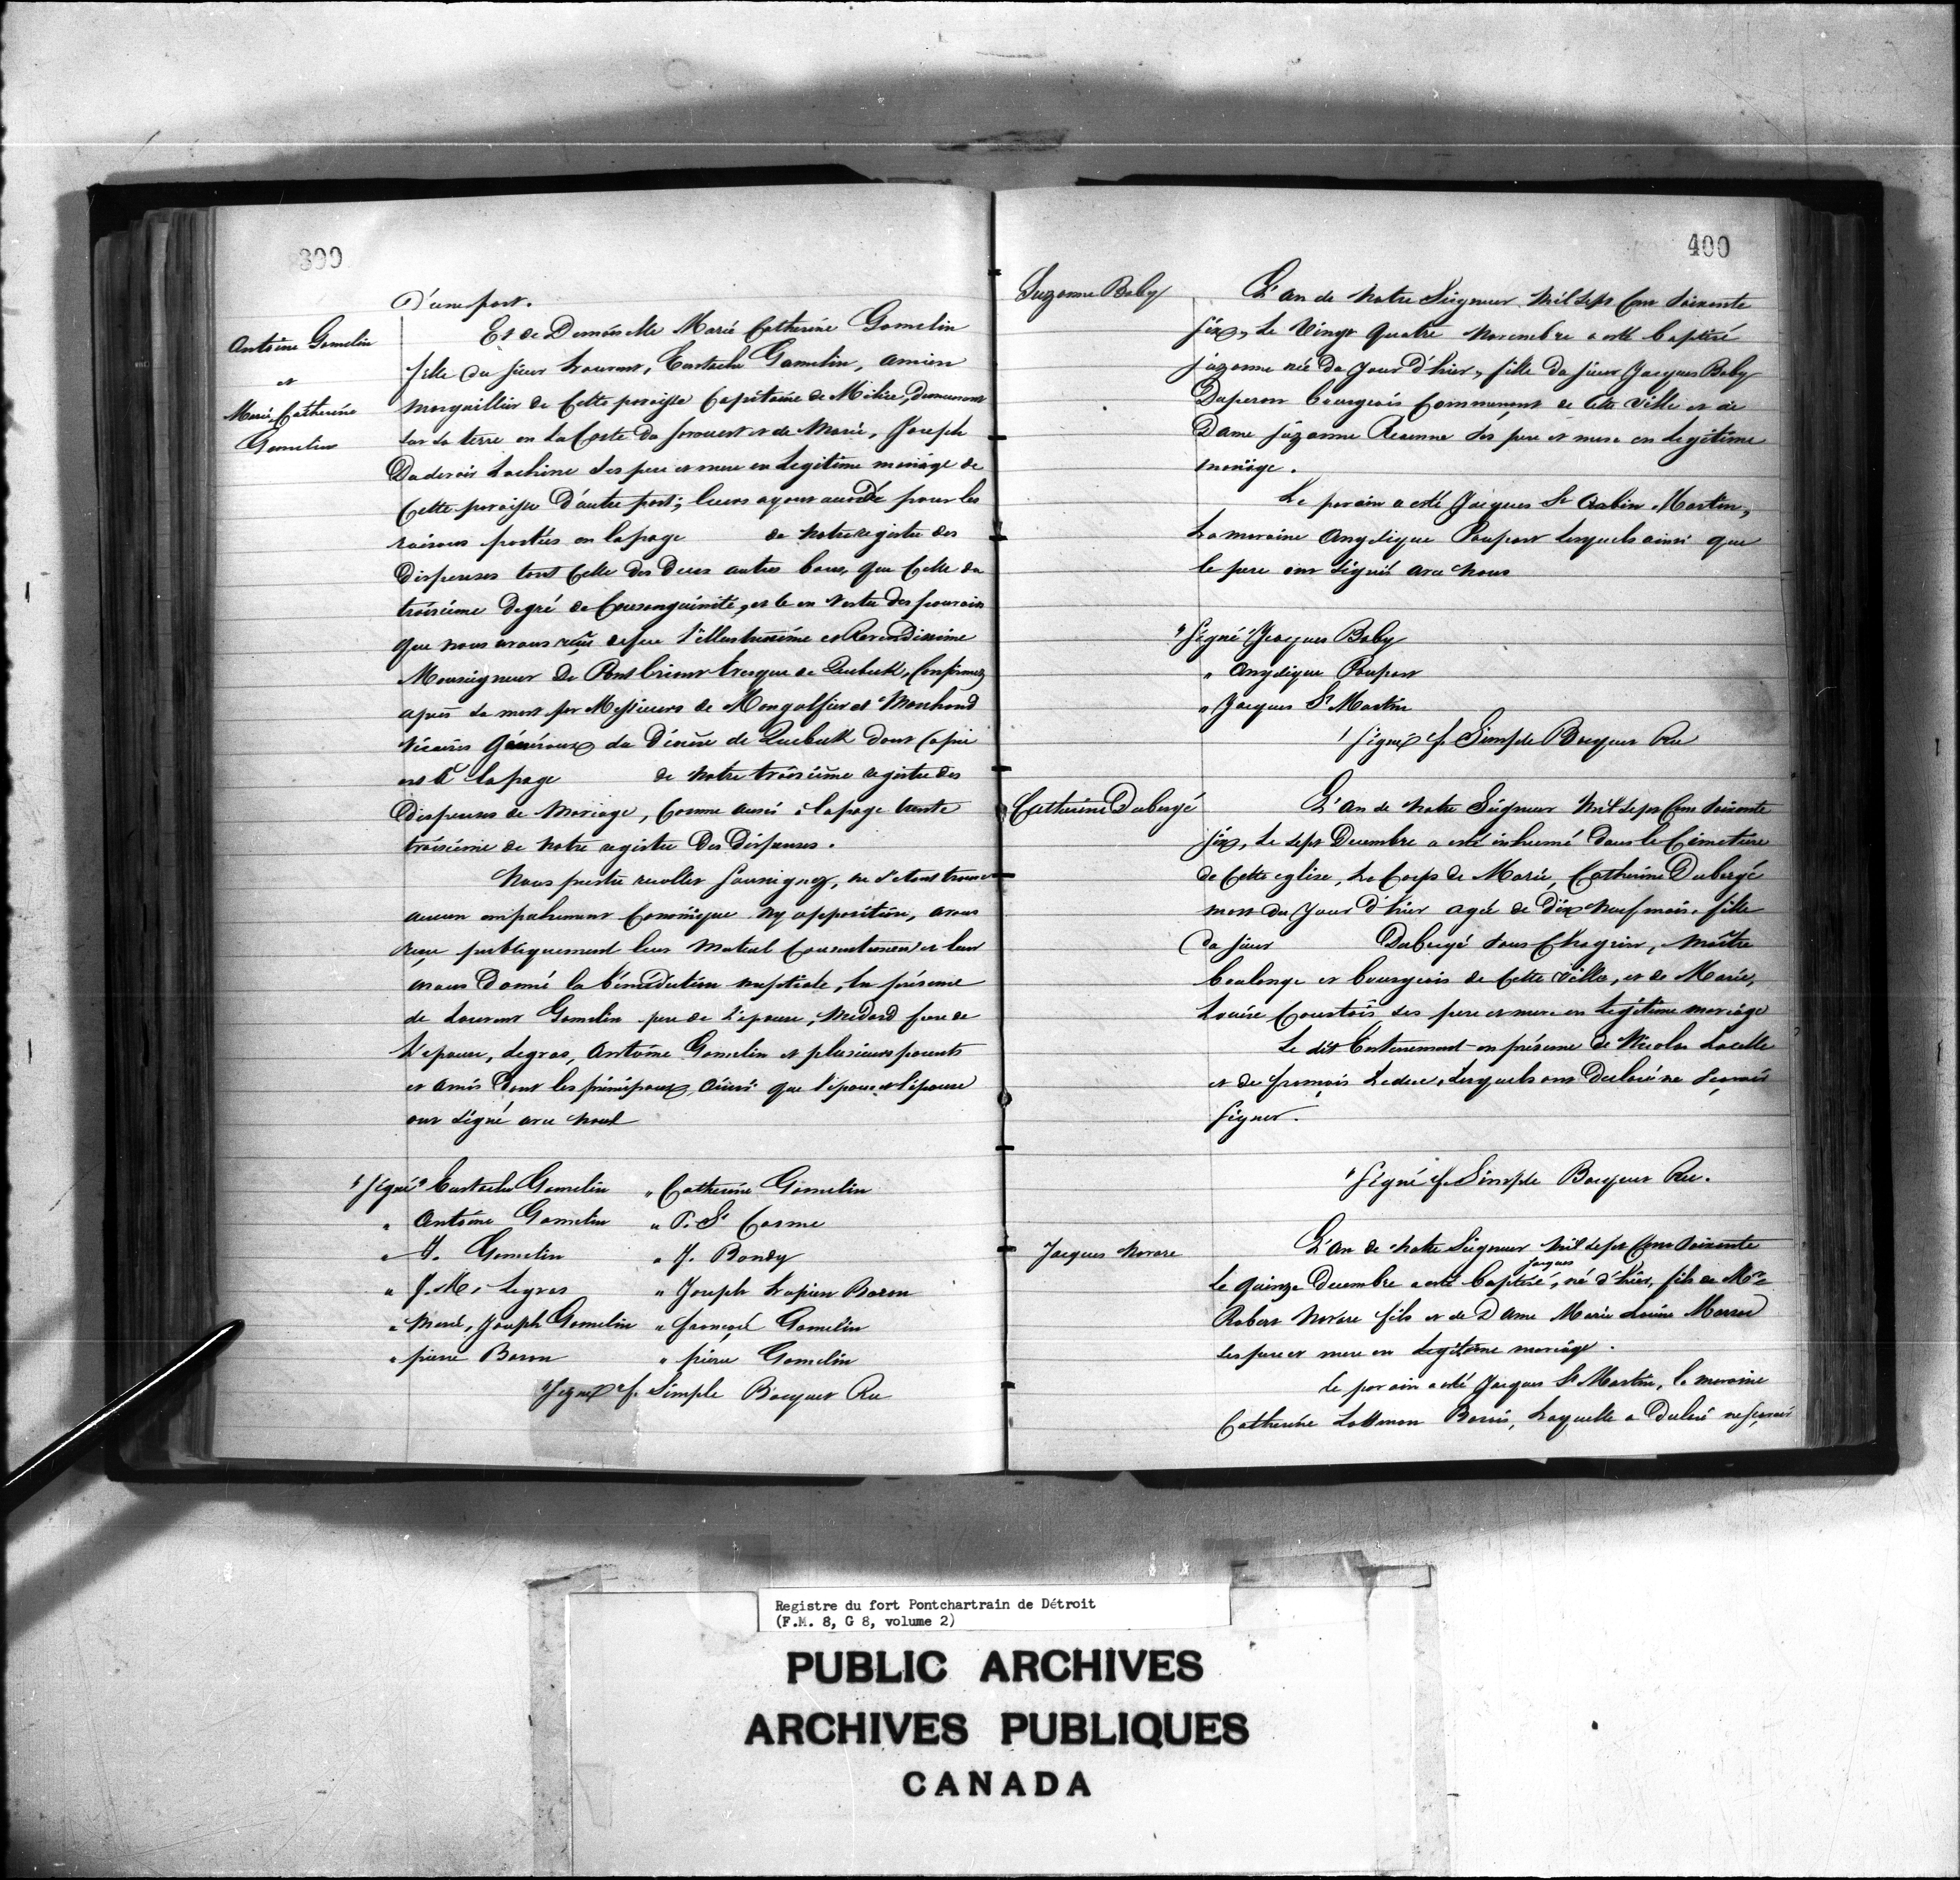 399
D'une part.
Antoine Gamelin
et
Marie, Catherine
Gamelin
Et de Demoiselle Marie Catherine Gamelin
fille du sieur Laurent, Eustache Gamelin, ancien
marguillier de Cette paroisse Capitaine de Milice, demeurant
sur sa terre en la Coste du sorouest et de Marie, Joseph
Dudevoir Lachine ses pere et mere en Legitime mariage de
Cette paroisse D'autre part; leurs ayant accordé pour les
raisons portées en la page de notre registre des
Dispenses tant Celle des Deux autres bans, que Celle du
troisieme Degré de Consanguinité, et le en Vertu des pouvoirs
que nous avons reçus de feu l'illustrissime et Reverendissime
Monseigneur De Pontbriant Evesque de Quebeck, Confirmez
après sa mort par Messieurs de Mongolfier et Marchand
Vicaires Généraux du Diocèse de Quebeck dont Copie
est à la page de notre troisieme registre des
Dispenses de Mariage, Comme aussi à la page trente
troisieme de notre registre Des Dispenses.
Nous prestre recollet soussignez, ne s'etant trouvé
aucun empechement Canonique ny opposition, avons
reçu publiquement leur Mutuel Consentement et leur
avons Donné la bénédiction nuptiale, En présence
de Laurent Gamelin pere de L'epouse, Medard frere de
L'epouse, Legras, Antoine Gamelin et plusieurs parents
et amis dont les principaux, ainsi que l'epoux et l'épouse
ont signé avec nous
"Signé" Eustache Gamelin " Catherine Gamelin
" Antoine Gamelin " P. St Cosme
" M. Gamelin " J. Bondy
" J. M. Legras " Joseph Lupien Baron
" Marie, Joseph Gamelin " François Gamelin
" pierre Baron " pierre Gamelin
"Signé" f. Simple Bocquet Rec
400
Suzanne Baby
L'an de Notre Seigneur Mil Sept Cent Soixante
six, Le Vingt Quatre Novembre a esté baptisé
suzanne née Du Jour D'hier, fille du sieur Jacques Baby
Duperon bourgeois Commerçant de Cette Ville et de
Dame suzanne Reaume ses pere et mere en Legitime
mariage.
Le parain a esté Jacques St Aubin Martin,
La maraine Angelique Poupart lesquels ainsi que
le pere ont Signés avec Nous
"Signé" Jacques Baby
" Angelique Poupart
" Jacques St Martin
"Signé f. Simple Bocquet Rec
Catherine Dubergé
L'an de Notre Seigneur Mil Sept Cent Soixante
six, Le sept Decembre a esté inhumé Dans le Cimetiere
de Cette eglise, Le Corps de Marie, Catherine Dubergé
mort du Jour D'hier agée de Dix Neuf mois, fille
du sieur Dubergé sans Chagrin, Maître
boulange et bourgeois de Cette Ville, et de Marie,
Louise Courtois, ses pere et mere en Legitime mariage
Le dit Enterrement en présence de Nicolas Lacelle
et de françois Leduc, Lesquels ont Declaré ne sçavoir
Signer.
"Signé f. Simple Bocquet Rec.
Jacques Navare
L'an de Notre Seigneur Mil Sept Cent Soixante
Le Quinze Decembre a esté baptisé, jacques né d'hier, fils de Mre
Robert Navare fils et de Dame Marie Louise Marsac
ses pere et mere en Legitime mariage.
Le parain a esté Jacques St Martin, la maraine
Catherine Barrois, Laquelle a Declaré ne sçavoir
Registre du fort Pontchartrain de Détroit
(F.M. 8, G 8, volume 2)
PUBLIC ARCHIVES
ARCHIVES PUBLIQUES
CANADA